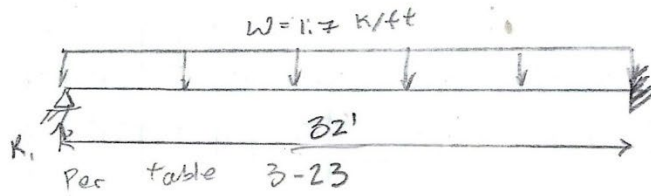 W = 1.7 K/ft
32'
R₁
Per table 3-23